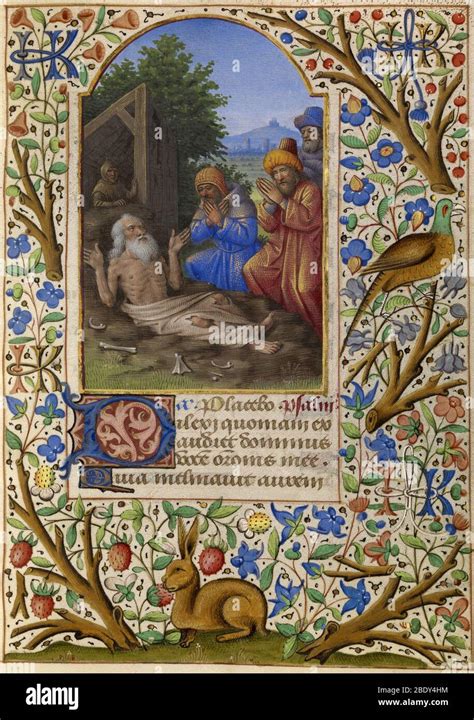 a. Placebo psalm
Dilexi quoniam ex
audiet dominus
voce orōnis mee
Quia inclinavit aurem
alamy
Image ID: 2BDY4HM
www.alamy.com